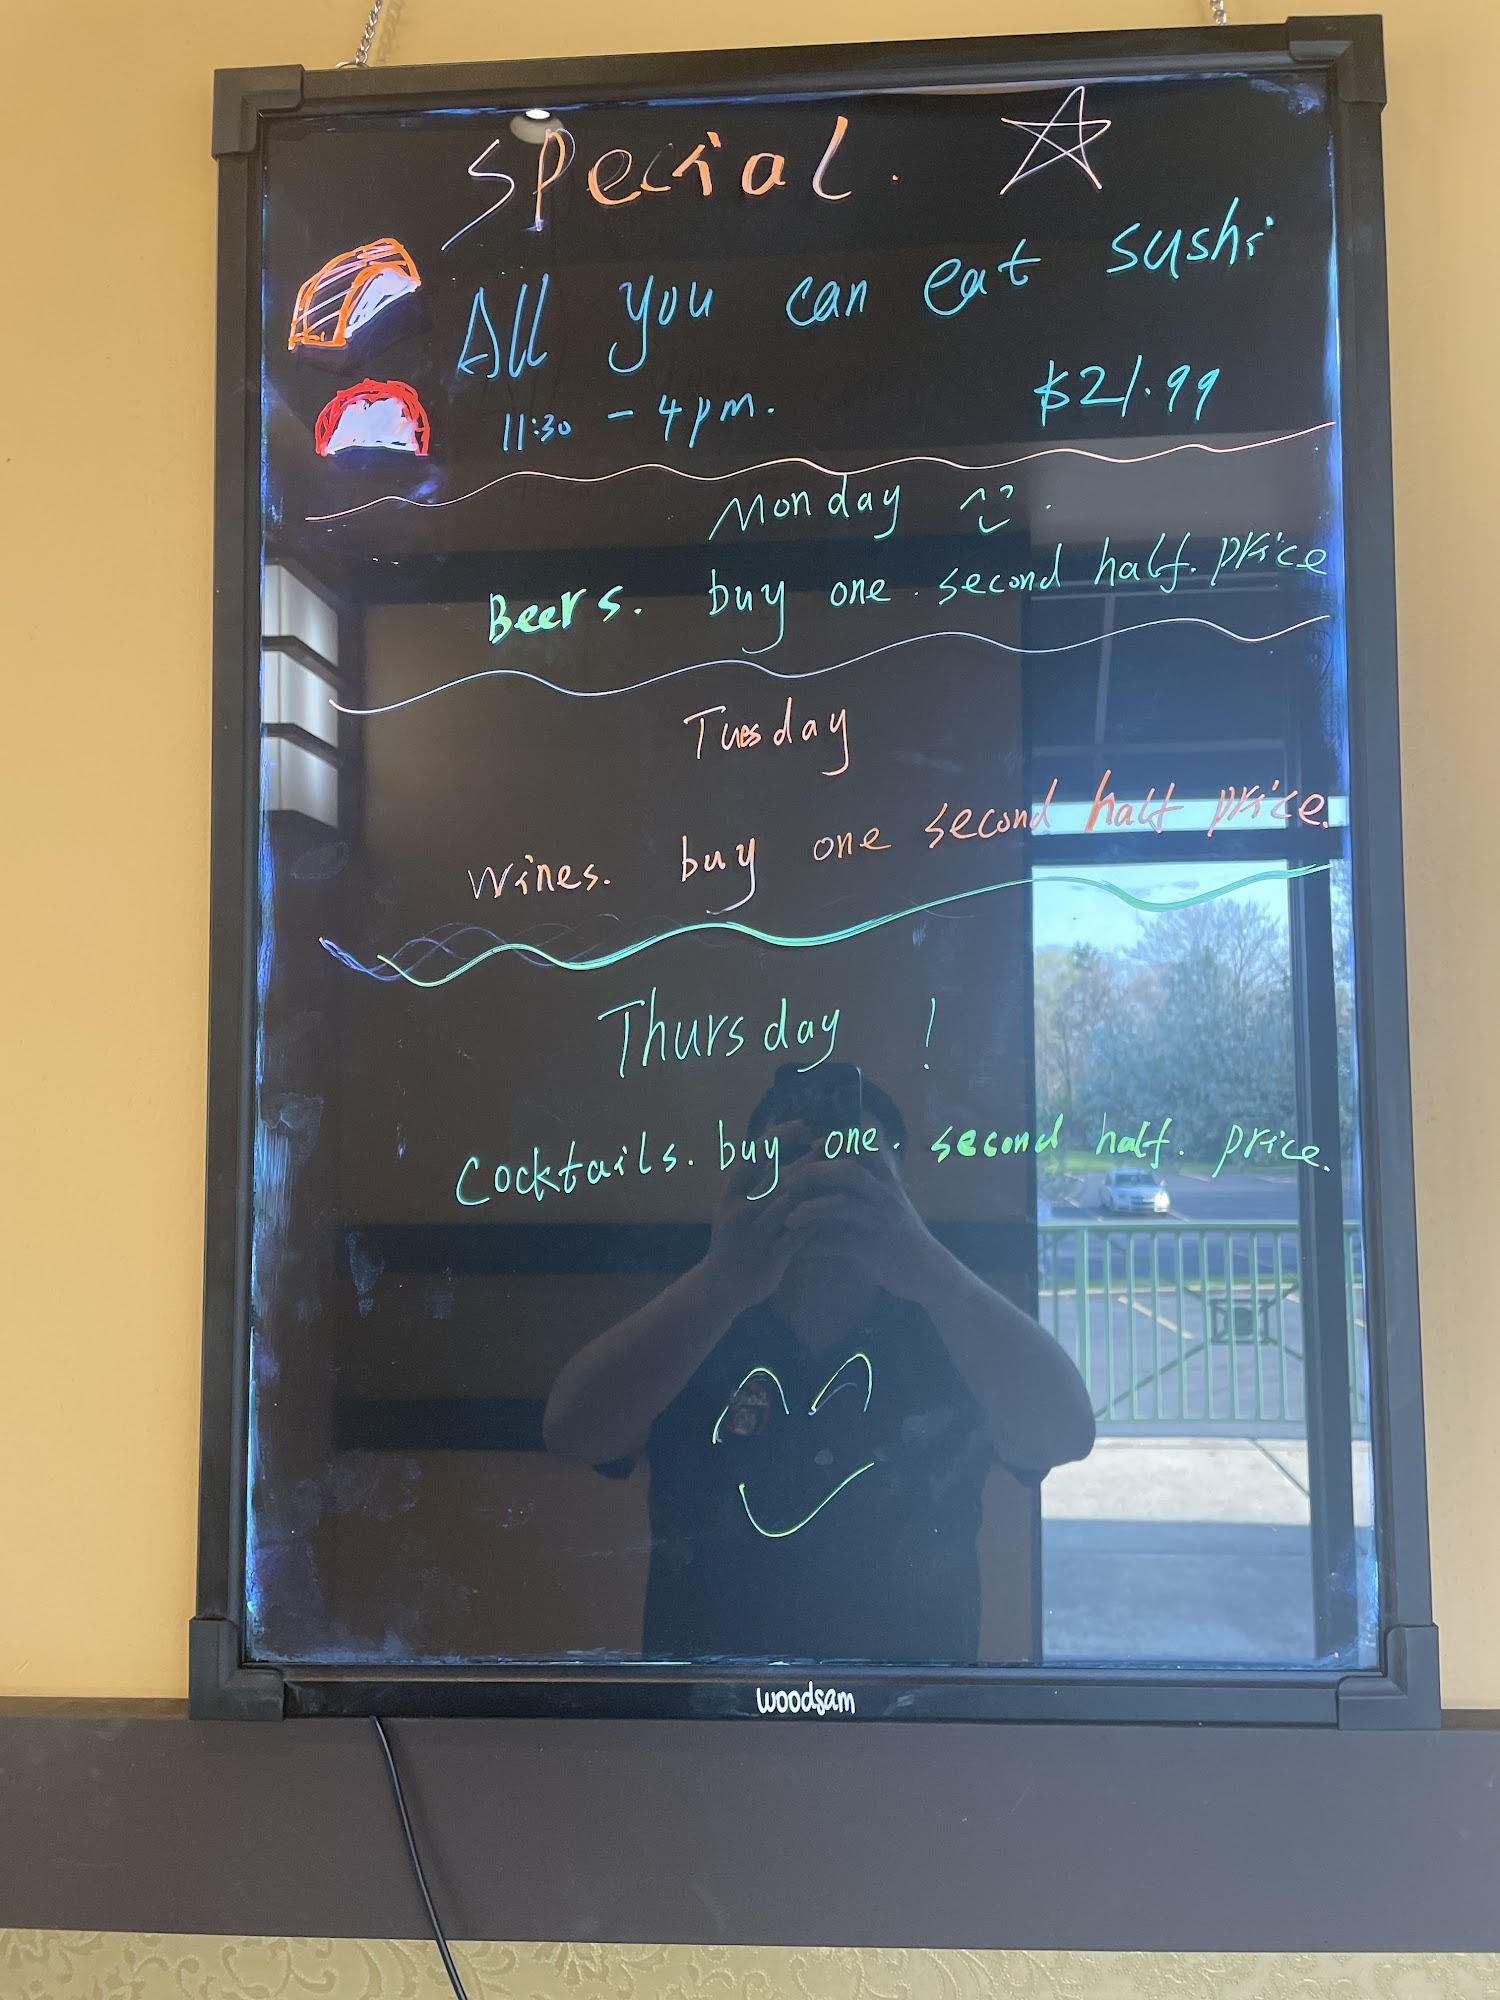 Special.
All you can eat sushi
11:30 - 4pm. $21.99
Monday
Beers. buy one. second half. price
Tuesday
Wines. buy one second half price.
Thursday !
Cocktails. buy one. second half. price.
woodsam